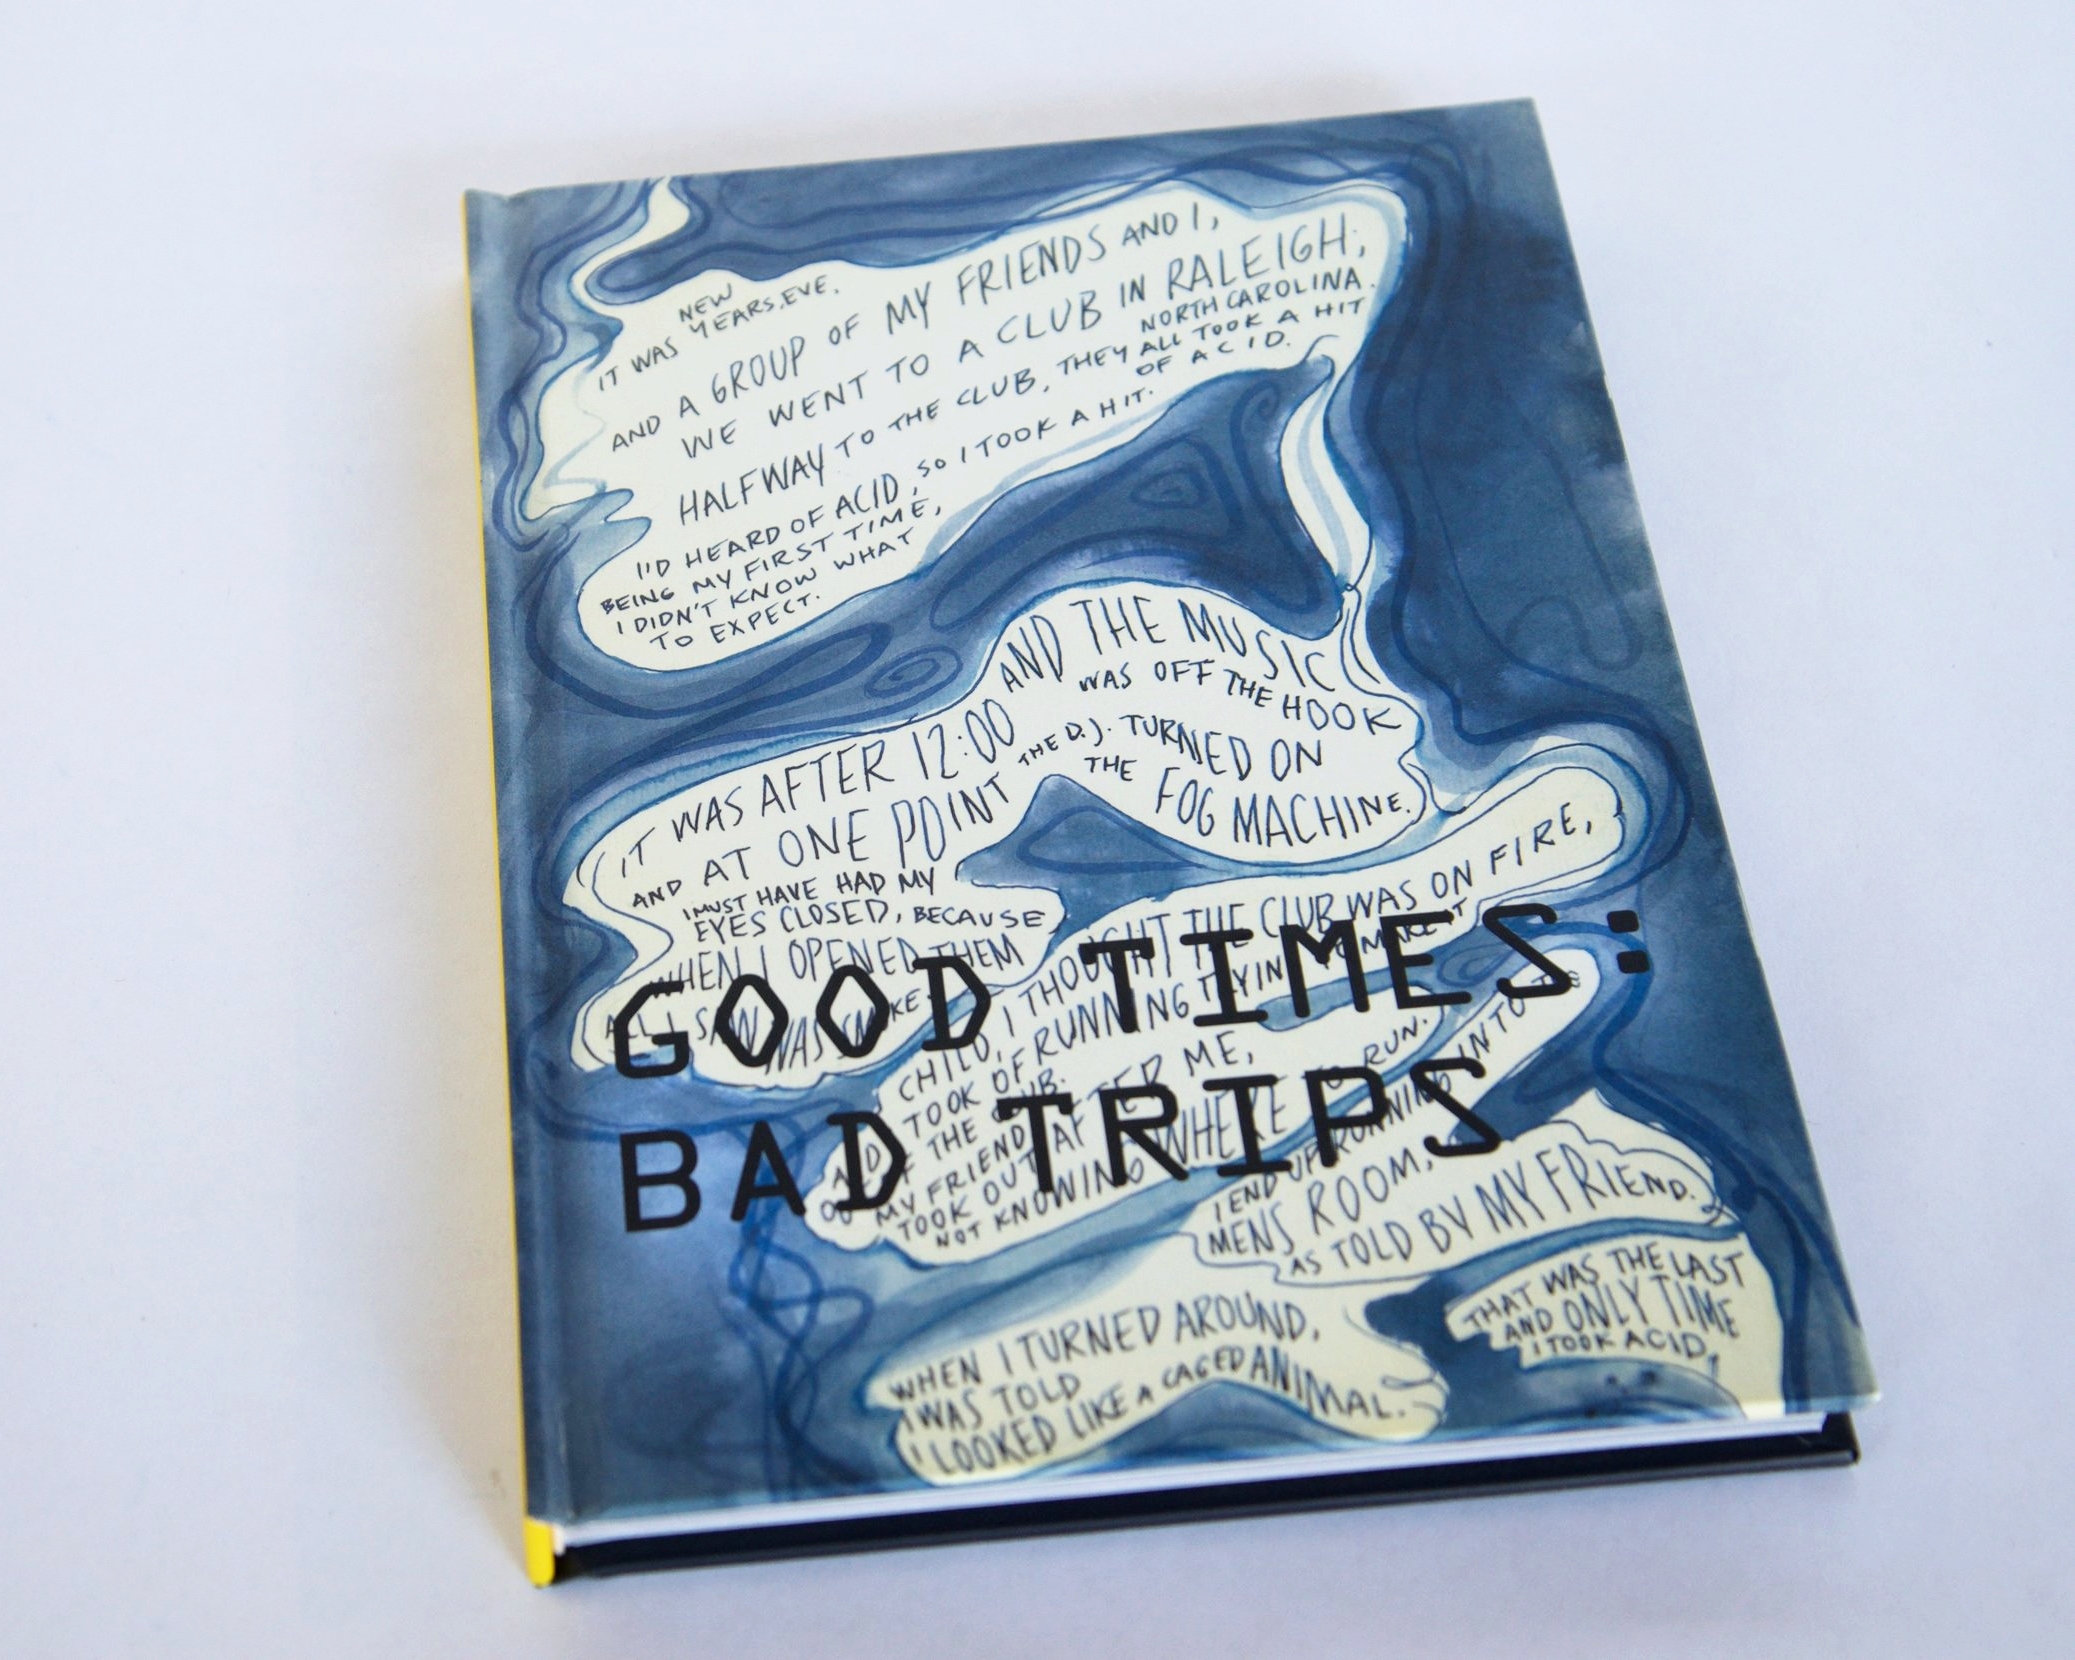 IT WAS NEW
YEARS, EVE.
AND A GROUP OF MY FRIENDS AND I,
WE WENT TO A CLUB IN RALEIGH,
NORTH CAROLINA.
HALFWAY TO THE CLUB, THEY ALL TOOK A HIT
OF ACID.
I'D HEARD OF ACID, SO I TOOK A HIT.
BEING MY FIRST TIME,
I DIDN'T KNOW WHAT
TO EXPECT.
IT WAS AFTER 12:00 AND THE MUSIC
WAS OFF THE HOOK
AND AT ONE POINT THE D.J. TURNED ON
THE FOG MACHINE.
I MUST HAVE HAD MY
EYES CLOSED, BECAUSE
WHEN I OPENED THEM
ALL I SAW WAS SMOKE.
CHILD, I THOUGHT THE CLUB WAS ON FIRE,
AND TOOK OF RUNNING TRYIN TO MAKE IT
OUT OF THE CLUB.
MY FRIEND TOOK OUT AFTER ME,
NOT KNOWING WHERE TO RUN.
I END UP RUNNING INTO THE
MENS ROOM,
AS TOLD BY MY FRIEND.
WHEN I TURNED AROUND,
I WAS TOLD
I LOOKED LIKE A CAGED ANIMAL.
THAT WAS THE LAST
AND ONLY TIME
I TOOK ACID.
GOOD TIMES:
BAD TRIPS